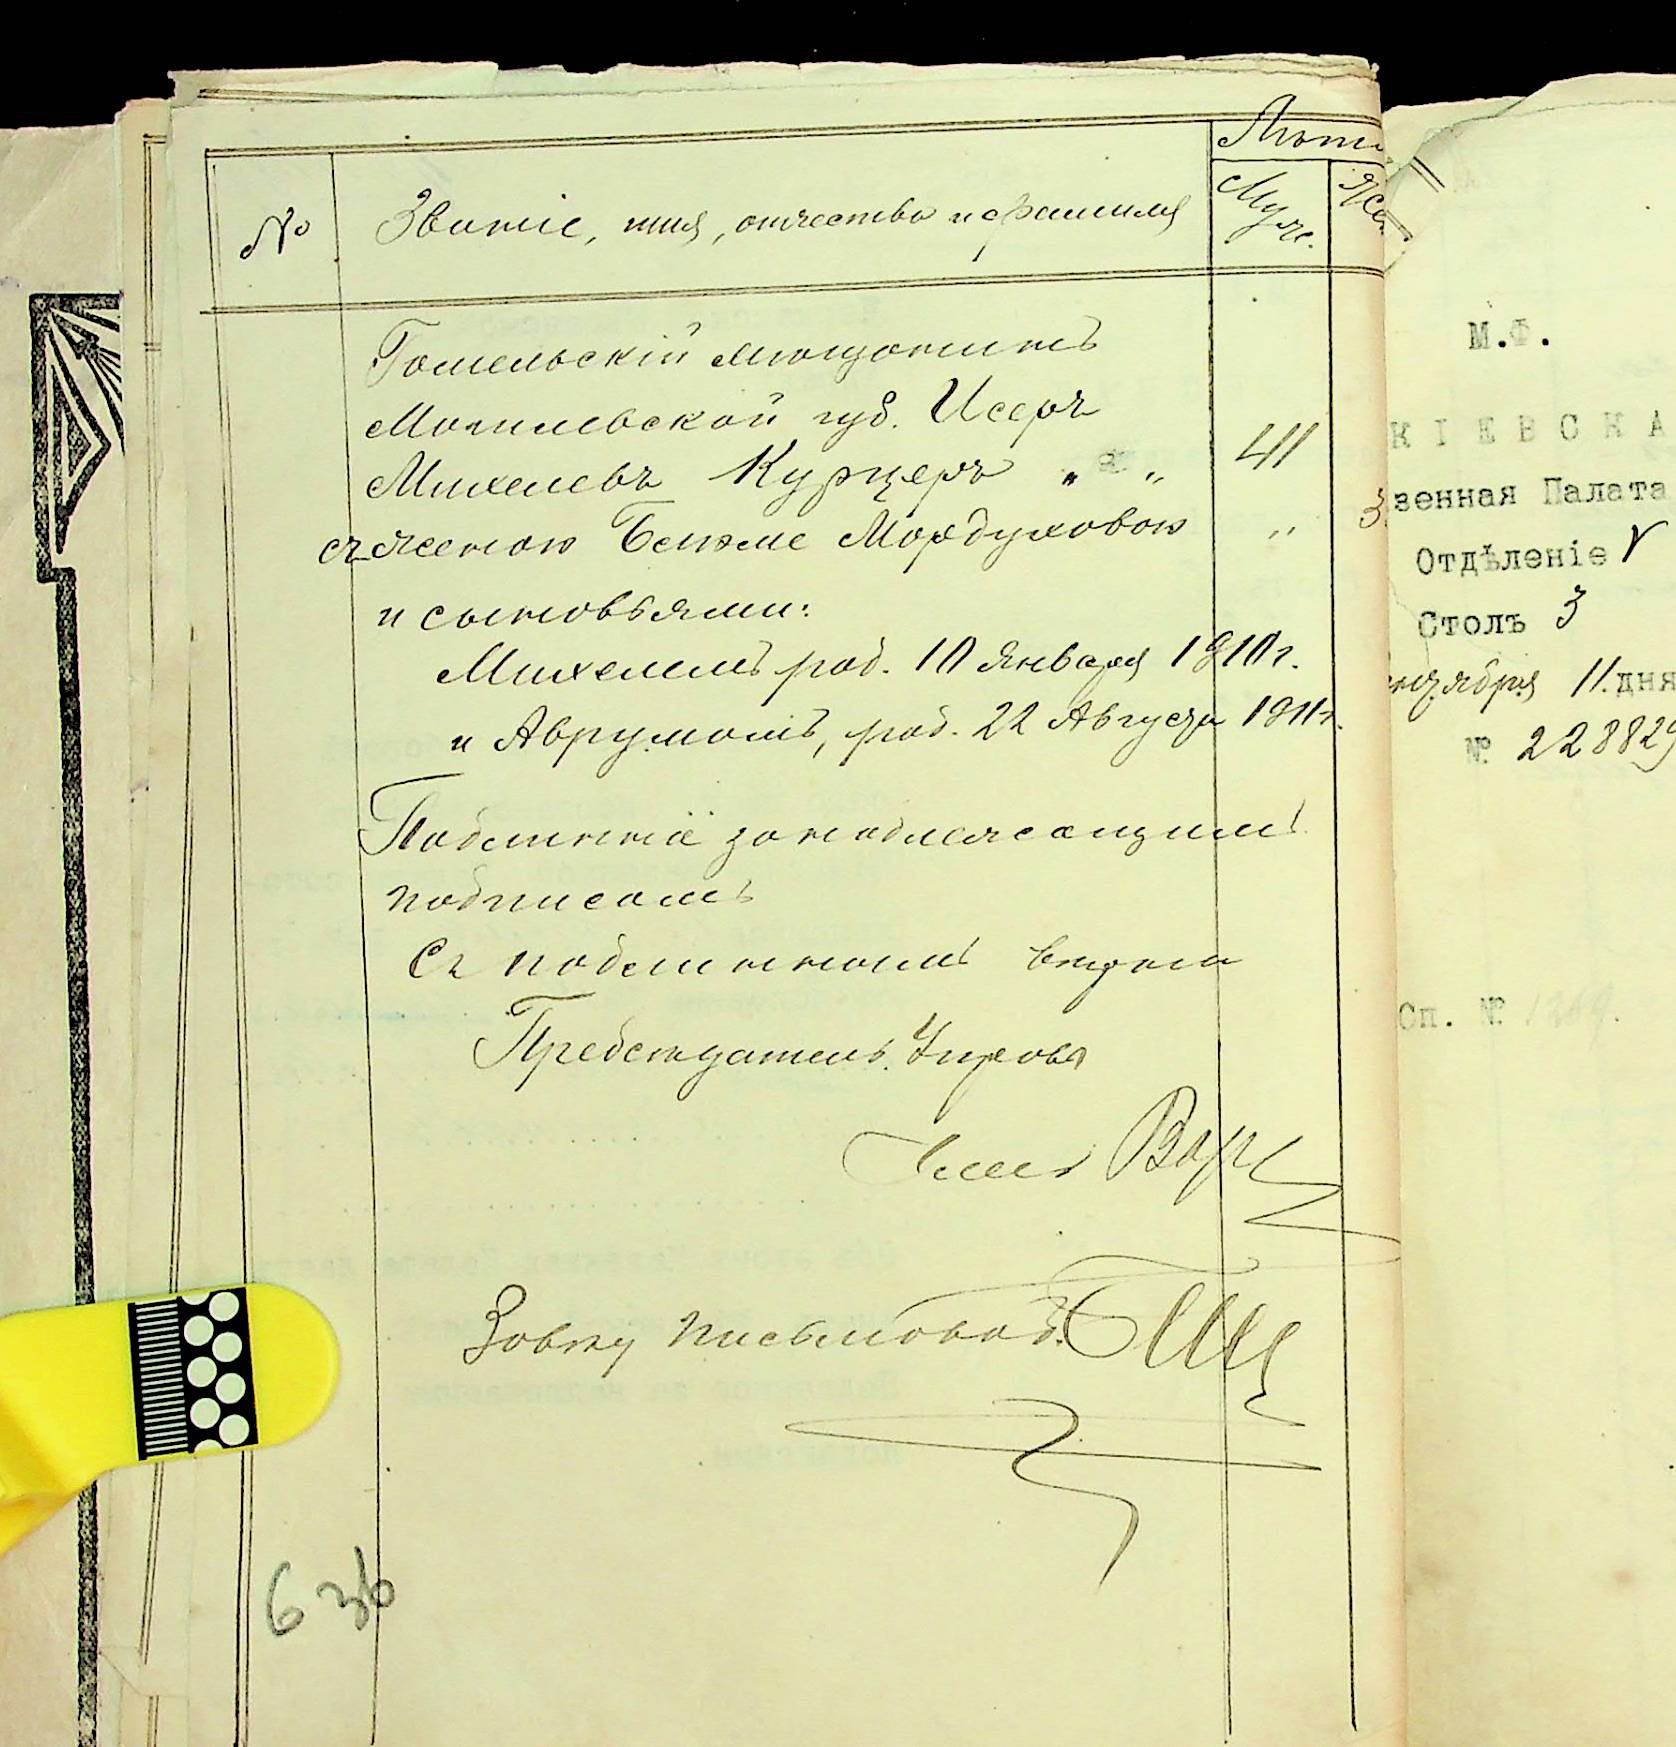 Лѣта
№ Званіе, имя, отчество и фамилія Муж. Жен.
Гомельскій мѣщанинъ
Могилевской губ. Исеръ
Михелевъ Курцеръ „ „ 41
съ женою Бейлме Мордуховою „ 3
и сыновьями:
Михелемъ род. 10 Января 1910 г.
и Аврумомъ, род. 22 Августа 1911 г.
Подлинный за надлежащимъ
подписомъ
Съ подлиннымъ вѣрно
Предсѣдатель Управы
Членъ
Завѣд. Письмовод.
6 зв
М.Ф.
КІЕВСКА
зенная Палата
Отдѣленіе V
Столъ 3
11 дня
№ 228829
Сп. № 1269.